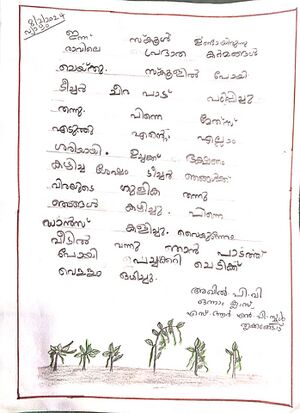 8/2/2024
ഇന്ന് സ്കൂൾ ഉണ്ടായിരുന്നു
രാവിലെ പ്രഭാത കർമ്മങ്ങൾ
ചെയ്തു. സ്കൂളിൽ പോയി
ടീച്ചർ ചിറ പാട്ട് പഠിപ്പിച്ചു
തന്നു. പിന്നെ
എഴുതി എന്റെ എല്ലാം
ശരിയായി. ഉച്ചക്ക് ഭക്ഷണം
കഴിച്ച ശേഷം ടീച്ചർ ഞങ്ങൾക്ക്
വിരയുടെ ഗുളിക തന്നു
ഞങ്ങൾ കഴിച്ചു. പിന്നെ
ഡാൻസ് കളിച്ചു. വൈകുന്നേരം
വീട്ടിൽ വന്നു ഞാൻ പാടത്ത്
പോയി പച്ചക്കറി ചെടിക്ക്
വെള്ളം ഒഴിച്ചു.
അഖിൽ പി.വി
ഒന്നാം ക്ലാസ്
എസ് ആർ എൻ പി സ്കൂൾ